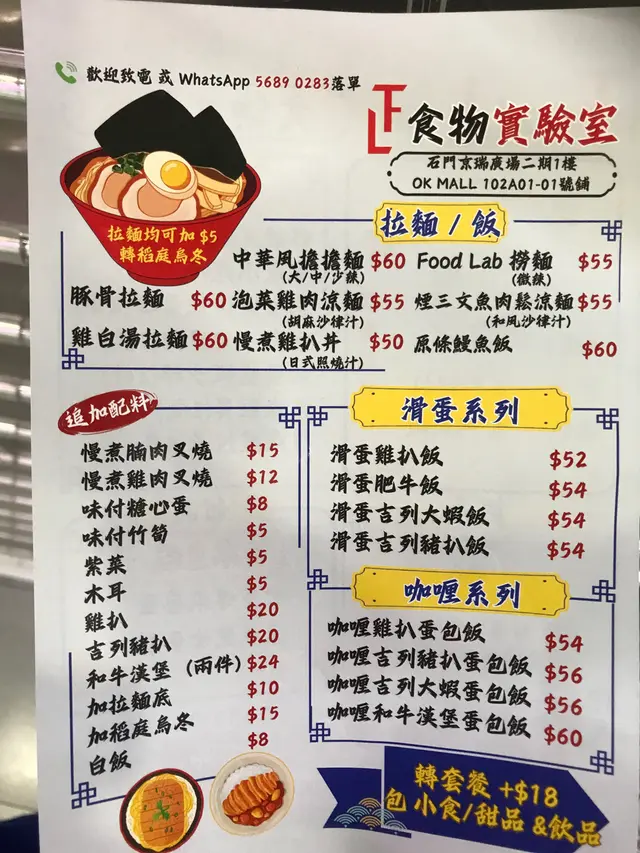 歡迎致電 或 WhatsApp 5689 0283落單
LF 食物實驗室
石門京瑞廣場二期1樓
OK MALL 102A01-01號鋪
拉麵均可加 $5
轉稻庭烏冬
拉麵 / 飯
豚骨拉麵 $60
雞白湯拉麵 $60
中華風擔擔麵 $60
(大/中/少辣)
泡菜雞肉涼麵 $55
(胡麻沙律汁)
慢煮雞扒丼 $50
(日式照燒汁)
Food Lab 撈麵 $55
(微辣)
煙三文魚肉鬆涼麵 $55
(和風沙律汁)
原條鰻魚飯 $60
追加配料
慢煮腩肉叉燒 $15
慢煮雞肉叉燒 $12
味付糖心蛋 $8
味付竹筍 $5
紫菜 $5
木耳 $5
雞扒 $20
吉列豬扒 $20
和牛漢堡 (兩件) $24
加拉麵底 $10
加稻庭烏冬 $15
白飯 $8
滑蛋系列
滑蛋雞扒飯 $52
滑蛋肥牛飯 $54
滑蛋吉列大蝦飯 $54
滑蛋吉列豬扒飯 $54
咖喱系列
咖喱雞扒蛋包飯 $54
咖喱吉列豬扒蛋包飯 $56
咖喱吉列大蝦蛋包飯 $56
咖喱和牛漢堡蛋包飯 $60
轉套餐 +$18
包 小食/甜品 &飲品